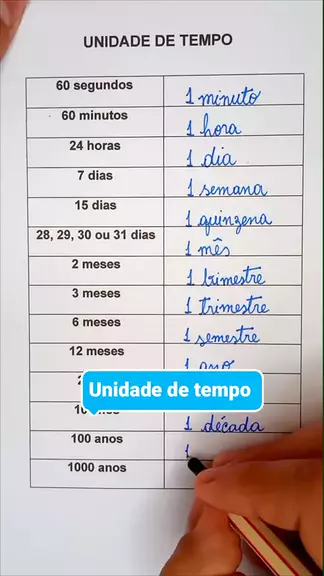 UNIDADE DE TEMPO
60 segundos 1 minuto
60 minutos 1 hora
24 horas 1 dia
7 dias 1 semana
15 dias 1 quinzena
28, 29, 30 ou 31 dias 1 mês
2 meses 1 bimestre
3 meses 1 trimestre
6 meses 1 semestre
12 meses 1 ano
Unidade de tempo
1 década
100 anos 1
1000 anos